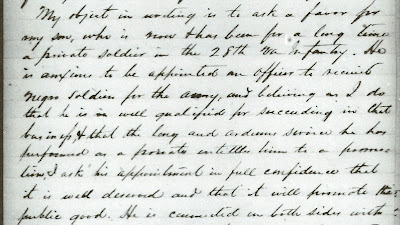 My object in writing is to ask a favor for
my son, who is now & has been for a long time
a private soldier in the 28th Va Infantry. He
is anxious to be appointed an officer to recruit
negro soldiers for the army, and believing as I do
that he is well qualified for succeeding in that
business, & that the long and arduous service he has
performed as a private entitles him to a promo-
tion, I ask his appointment in full confidence that
it is well deserved and that it will promote the
public good. He is connected on both sides with